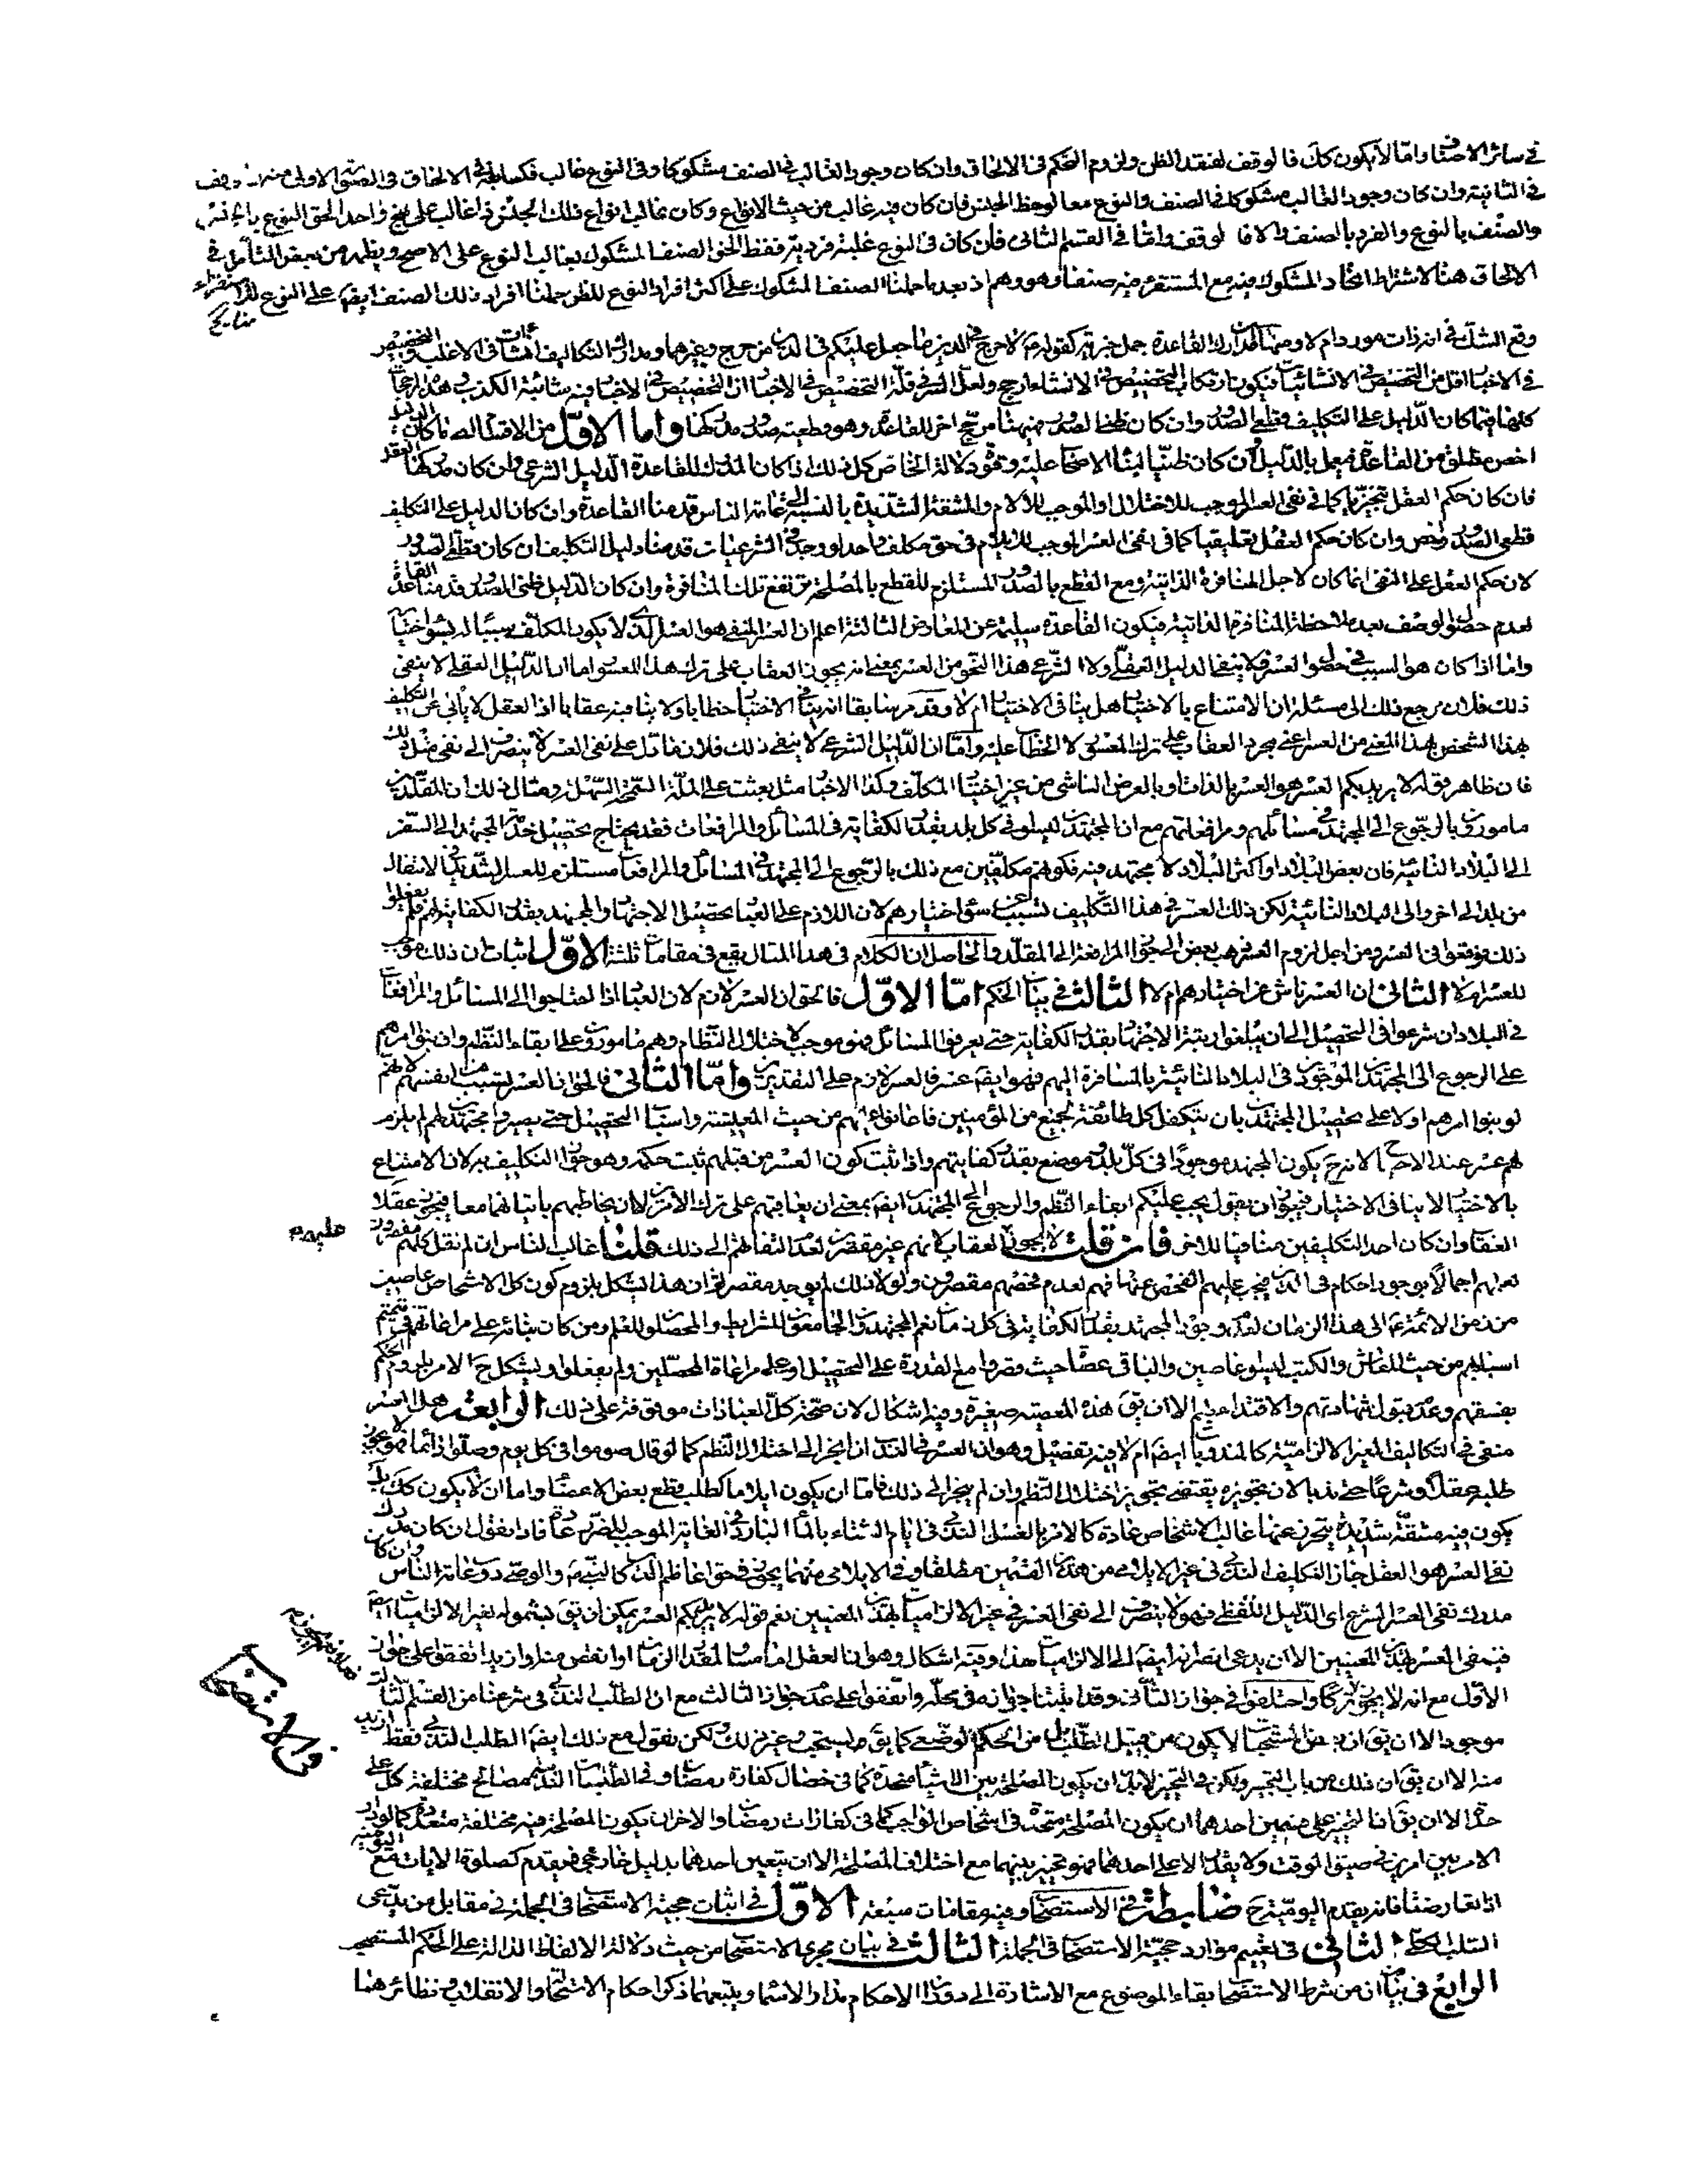 في سائر الاصناف واما لا يكون كك فالوقف لفقد الظن ولزوم التحكم في الالحاق وان كان وجود الغالب في الصنف مشكوكا وفي النوع غالب فكسابقه في الالحاق في الصورة الاولى منه
في الثانية وان كان وجود الغالب مشكوكا في الصنف والنوع معا لوحظ الجنس فان كان فيه غالب من حيث الانواع وكان غالب انواع ذلك الجنس فيه اغالب على نهج واحد الحق النوع بالجنس
والصنف بالنوع والفرد بالصنف والا فالوقف واما في القسم الثاني فان كان في النوع غلبة فردية فقط الحق الصنف المشكوك بغالب النوع على الاصح ويظهر من بعض التأمل في
الالحاق هنا لاشتراط اتحاد المشكوك فيه مع المستقرء فيه صنفا وهو وهم اذ بعد ما حملنا الصنف المشكوك على اكثر افراد النوع للظن حملنا افراد ذلك الصنف ايضا على النوع
وقع الشك في انه ذات مورد ام لا ومنها ان مدارك القاعدة جمل خبرية كقوله لا حرج في الدين وما جعل عليكم في الدين من حرج وغيرهما ومدارك التكاليف انشائات في الاغلب والتخصيص
في الاخبار اقل من التخصيص في الانشائيات فيكون ارتكاب التخصيص في الانشاء ارجح ولعل السر في قلة التخصيص في الاخبار ان التخصيص في الاخبار فيه شائبة الكذب هذه المرجحات
كلها فيما كان الدليل على التكليف قطعي الصدور وان كان ظني الصدور فهيهنا مرجح اخر للقاعدة وهو قطعية صدور مدركها واما الاول من الاقسام الصـ ما كان الدليل
اخص مطلق من القاعدة فيعمل بالدليل وان كان ظنيا لبناء الاصحاب عليه وقوة دلالة الخاص كل ذلك اذا كان المدرك للقاعدة الدليل الشرعي وان كان مدركها العقل
فان كان حكم العقل تنجيزيا كما في نفي العسر الموجب للاختلال او الموجب للآلام والمشقة الشديدة بالنسبة الى عامة الناس قدمنا القاعدة وان كان الدليل على التكليف
قطعي الصدور واخص وان كان حكم العقل تعليقيا كما في نفي العسر الموجب للايلام في حق مكلف واحد او وجد في الشرعيات قدمنا دليل التكليف ان كان قطعي الصدور
لان حكم العقل على النفي انما كان لاجل المنافرة الذاتية ومع القطع بالصدور المستلزم للقطع بالمصلحة يرتفع تلك المنافرة وان كان الدليل ظني الصدور قدمنا القاعدة
لعدم حصول الوصف بعد ملاحظة المنافرة الذاتية فيكون القاعدة سليمة عن المعارض الثالثة اعلم ان العسر المنفي هو العسر الذي لا يكون المكلف سببا له بسوء اختياره
واما اذا كان هو السبب في حصول العسر فلا ينفيه الدليل العقلي ولا الشرعي هذا النحو من العسر بمعنى انه يجوز العقاب على ترك هذا المعسور اما ان الدليل العقلي لا ينفي
ذلك فلان مرجع ذلك الى مسئلة ان الامتناع بالاختيار هل ينافي الاختيار ام لا وقد مر منا سابقا انه ينافي الاختيار خطابا ولا ينافيه عقابا اذ العقل لا يأبى عن تكليف
هذا الشخص بهذا المعنى من العسر اعني مجرد العقاب على ترك المعسور لا الخطاب عليه واما ان الدليل الشرعي لا ينفي ذلك فلان ما دل على نفي العسر لا ينصرف الى نفي مثل ذلك
فان ظاهر قوله لا يريد بكم العسر هو العسر بالذات او بالعرض الناشي من غير اختيار المكلف وكذا الاخبار مثل بعثت على الملة السمحة السهلة ومثال ذلك ان المقلدين
مامورون بالرجوع الى المجتهد في مسائلهم ومرافعاتهم مع ان المجتهدين ليسوا في كل بلد بقدر الكفاية في المسائل والمرافعات فقد يحتاج تحصيل خدمة المجتهد الى السفر
الى البلاد النائية فان بعض البلاد او اكثر البلاد لا مجتهد فيه فكونهم مكلفين مع ذلك بالرجوع الى المجتهد في المسائل والمرافعات مستلزم للعسر الشديد في الانتقال
من بلد الى اخر والى البلاد النائية لكن ذلك العسر في هذا التكليف لتسببه عن سوء اختيارهم لان اللازم على العباد تحصيل الاجتهاد والمجتهد بقدر الكفاية فلم يفعلوا
ذلك فوقعوا في العسر ومن اجل لزوم العسر ذهب بعض الى جواز المرافعة الى المقلد والحاصل ان الكلام في هذا المثال يقع في مقامات ثلثة الاول اثبات ان ذلك موجب
للعسر ام لا الثاني ان العسر ناش عن اختيارهم ام لا الثالث في بيان الحكم اما الاول فالحق ان العسر لازم لان العباد اذا احتاجوا الى المسائل والمرافعات
في البلاد ان شرعوا في التحصيل الى ان يبلغوا رتبة الاجتهاد بقدر الكفاية حتى يعرفوا المسائل فهو موجب لاختلال النظام وهم مامورون على ابقاء النظم وان بنوا امرهم
على الرجوع الى المجتهدين الموجودين في البلاد النائية بالمسافرة اليهم فهو ايضا عسر فالعسر لازم على التقديرين واما الثاني فالحق ان العسر لتسبب من انفسهم لانهم
لو بنوا امرهم اولا على تحصيل المجتهدين بان يتكفل كل طائفة لجمع من المؤمنين فاعانوهم من حيث المعيشة واسباب التحصيل حتى يصيروا مجتهدين لهم لم يلزم
لهم عسر عند الاحتياج اذ ح يكون المجتهد موجودا في كل بلد وموضع بقدر كفايتهم واذا ثبت كون العسر من قبلهم ثبت حكمه وهو جواز التكليف به لان الامتناع
بالاختيار لا ينافي الاختيار فيجوز ان يقول يجب عليكم ابقاء النظم والرجوع الى المجتهدين ايضا بمعنى ان يعاقبهم على ترك الامرين لا ان يخاطبهم باتيانهما معا فيجوز عقلا
العقاب وان كان احد التكليفين منافيا للاخر فان قلت لا يجوز العقاب لانهم غير مقصرين لعدم التفاتهم الى ذلك قلنا غالب الناس ان لم نقل كلهم مقصرون
لعلمهم اجمالا بوجود احكام في الدين فيجب عليهم الفحص عنها فهم لعدم فحصهم مقصرون ولولا ذلك لم يوجد مقصر نعم ان هذا يشكل بلزوم كون كل الاشخاص عاصين
من زمن الائمة ع الى هذا الزمان لعدم وجود المجتهد بقدر الكفاية في كل زمان نعم المجتهدين الجامعون للشرايط والمحصلون للعلم ومن كان بنائه على مراعاتهم في تتميم
اسبابهم من حيث المعاش والكتب ليسوا عاصين والباقي عصاة حيث قصروا مع القدرة على التحصيل او على مراعاة المحصلين ولم يفعلوا ويشكل ح الامر بلزوم الحكم
بفسقهم وعدم قبول شهادتهم والاقتداء بهم الا ان يق هذه المعصية صغيرة وفيه اشكال لان صحة كل العبادات موقوفة على ذلك الرابعة هل العسر
منفي في التكاليف الغير الالزامية كالمندوبات ايضا ام لا فيه تفصيل وهو ان العسر في الندب ان انجر الى اختلال النظم كما لو قال صوموا في كل يوم وصلوا دائما فهو لا يجوز
طلبه عقلا وشرعا حتى ندبا لان تجويزه يقتضي تجويز اختلال النظم وان لم ينجر الى ذلك فاما ان يكون ايلاما كطلب قطع بعض الاعضاء واما ان لا يكون كك بل
يكون فيه مشقة شديدة يتحرز عنها غالب الاشخاص عادة كالامر بالغسل الندبي في ايام الشتاء بالماء البارد في الغاية الموجب للتضرر عادة فاذا نقول ان كان مدرك
نفي العسر هو العقل جاز التكليف الندبي في غير الايلامي من هذين القسمين مطلقا وفي الايلامي منهما يجوز في حق اعاظم الدين كالنبي ص والوصي دون عامة الناس وان كان
مدرك نفي العسر الشرع اي الدليل اللفظي فهو لا ينصرف الى نفي العسر في غير الالزاميات بهذين المعنيين نعم قوله لا يريد بكم العسر يمكن ان يق بشموله لغير الالزاميات ايضا
فينفي العسر بهذين المعنيين الا ان يدعي انصرافه ايضا الى الالزاميات هذا وفيه اشكال وهو ان العقل
الاول مع انه لا يجوز تركا واختلفوا في جواز الثاني وقد اثبتنا جوازه في محله واتفقوا على عدم جواز الثالث مع ان الطلب الندبي في شرعنا من القسم الثالث
موجود الا ان يق ان بعض المستحبات لا يكون من قبيل الطلب بل من الحكم الوضعي كما يق يستحب عزيز لك ولكن نقول مع ذلك ايضا الطلب الندبي فقط ازيد
منه الا ان يق ان ذلك من باب التخيير ولكن في التخيير لا بد ان يكون المصلحة بين الاشياء متحدة كما في خصال كفارة رمضان وفي الطلبات الندبية مصالح مختلفة كل على
حدة الا ان يق ان التخيير على قسمين احدهما ان يكون المصلحة متحدة في اشخاص الواجب كما في كفارات رمضان والاخر ان يكون المصلحة فيه مختلفة متعددة كما لو دار
الامر بين امرين في ضيق الوقت ولا يقدر الا على احدهما فهو تخيير بينهما مع اختلاف المصلحة الا ان يتعين احدهما بدليل خارجي فيقدم كصلوة الايات مع اليومية
اذا تعارضتا فانه يقدم اليومية ح ضابطة في الاستصحاب وفيه مقامات سبعة الاول في اثبات حجية الاستصحاب في الجملة في مقابل من يدعي
السلب الكلي الثاني في تعميم موارد حجية الاستصحاب في الجملة الثالث في بيان مجرى الاستصحاب من حيث دلالة الالفاظ الدالة على الحكم المستصحب
الرابع في بيان ان من شرط الاستصحاب بقاء الموضوع مع الاشارة الى دوران الاحكام مدار الاسماء ويتبعهما ذكر احكام الاستحالة والانقلاب ونظائرهما